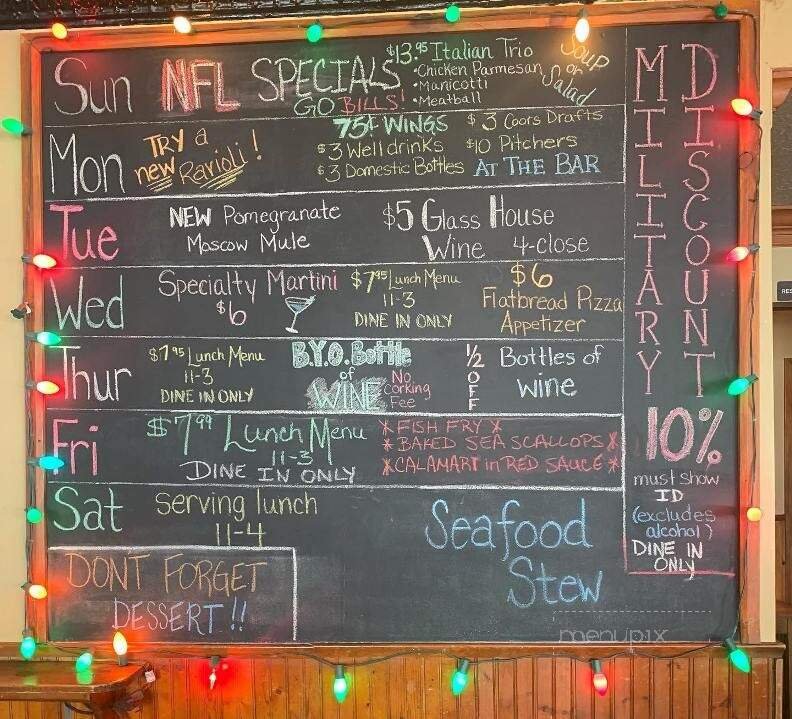 Sun NFL SPECIALS
GO BILLS!
$13.95 Italian Trio
•Chicken Parmesan
•Manicotti
•Meatball
Soup
or
Salad
Mon
TRY a
new Ravioli!
75¢ WINGS
$3 Well drinks
$3 Domestic Bottles
$3 Coors Drafts
$10 Pitchers
AT THE BAR
Tue
NEW Pomegranate
Moscow Mule
$5 Glass House
Wine 4-close
Wed
Specialty Martini
$6
$7.95 Lunch Menu
11-3
DINE IN ONLY
$6
Flatbread Pizza
Appetizer
Thur
$7.95 Lunch Menu
11-3
DINE IN ONLY
B.Y.O. Bottle
of
WINE
No
Corking
Fee
1/2
OFF
Bottles of
wine
Fri
$7.99 Lunch Menu
11-3
DINE IN ONLY
*FISH FRY*
*BAKED SEA SCALLOPS*
*CALAMARI in RED SAUCE*
Sat
serving lunch
11-4
Seafood
Stew
DONT FORGET
DESSERT!!
MILITARY
DISCOUNT
10%
must show
ID
(excludes
alcohol)
DINE IN
ONLY
RES
menupix